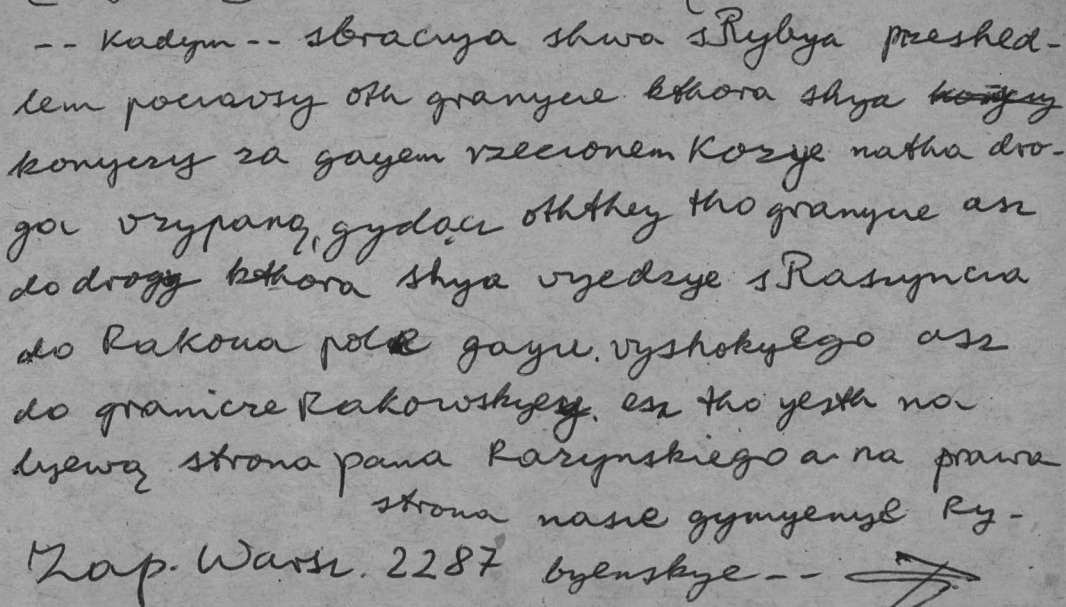 -- Kadym -- sbracya shwa s Rybya przeshed-
lem pocravsy oth granycie kthora shya konyczy
konyczy za gayem rzecionem Kozye natha dro-
ga vsypaną, gydącz oththey tho granycie asz
do drogy kthora shya vyedzye s Raszyncza
do Rakowa pole gayu vyshokyego asz
do granicze Rakowskyey. esz tho yesth na
lyewą strona pana Razynskiego a na prawa
strona nasze gymyenye Ry-
Zap. Warsz. 2287 byenskye --